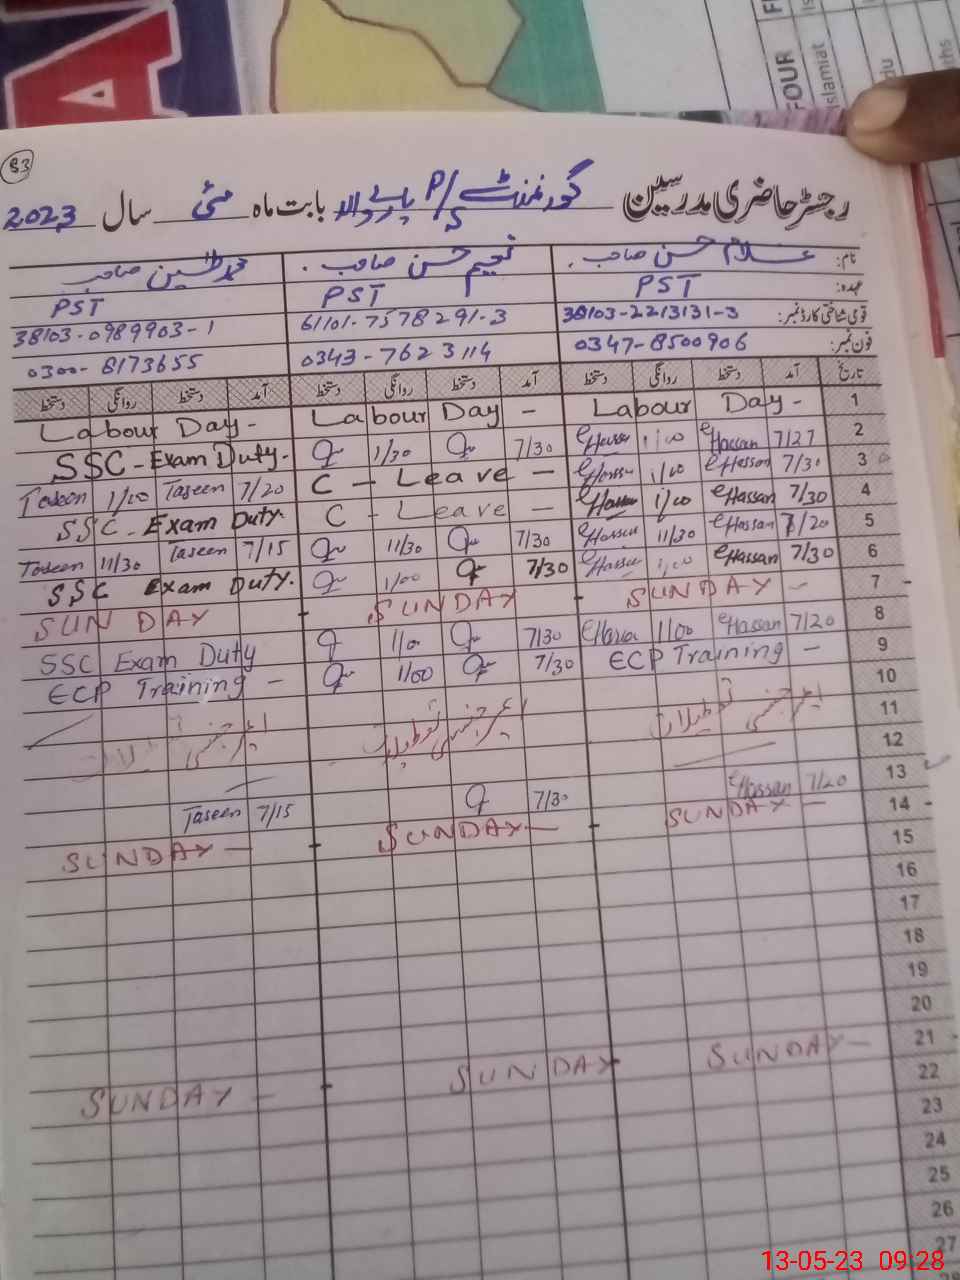 83
رجسٹر حاضری مدرسین گورنمنٹ P/S بابت ماہ مئی سال 2023
نام: غلام حسن صاحب نعیم حسن صاحب محمد تحسین صاحب
عہدہ: PST PST PST
قومی شناختی کارڈ نمبر: 38103-2213131-3 61101-7578291-3 38103-0989903-1
فون نمبر: 0347-8500906 0343-7623114 0300-8173655
تاریخ آمد دستخط روانگی دستخط آمد دستخط روانگی دستخط آمد دستخط روانگی دستخط
1 Labour Day - Labour Day - Labour Day -
2 7/27 Hassan 1:00 7/30 1/30 SSC - Exam Duty.
3 7/30 Hassan 1/00 C - Leave - 7/20 Taseen 1/00 Taseen
4 7/30 Hassan 1/00 C - Leave - SSC - Exam Duty
5 7/20 Hassan 11/30 7/30 11/30 7/15 Taseen 11/30 Taseen
6 7/30 Hassan 1:00 7/30 1/00 SSC Exam Duty.
7 SUNDAY - SUNDAY SUNDAY
8 7/20 Hassan 1/00 7/30 1/00 SSC Exam Duty
9 ECP Training - 7/30 1/00 ECP Training -
10
11 ایمرجنسی تعطیلات ایمرجنسی تعطیلات ایمرجنسی
12
13 7/20 Hassan 7/30 7/15 Taseen
14 SUNDAY - SUNDAY - SUNDAY -
15
16
17
18
19
20
21 SUNDAY - SUNDAY SUNDAY -
22
23
24
25
26
27
28
FOUR
Islamiat
13-05-23 09:28